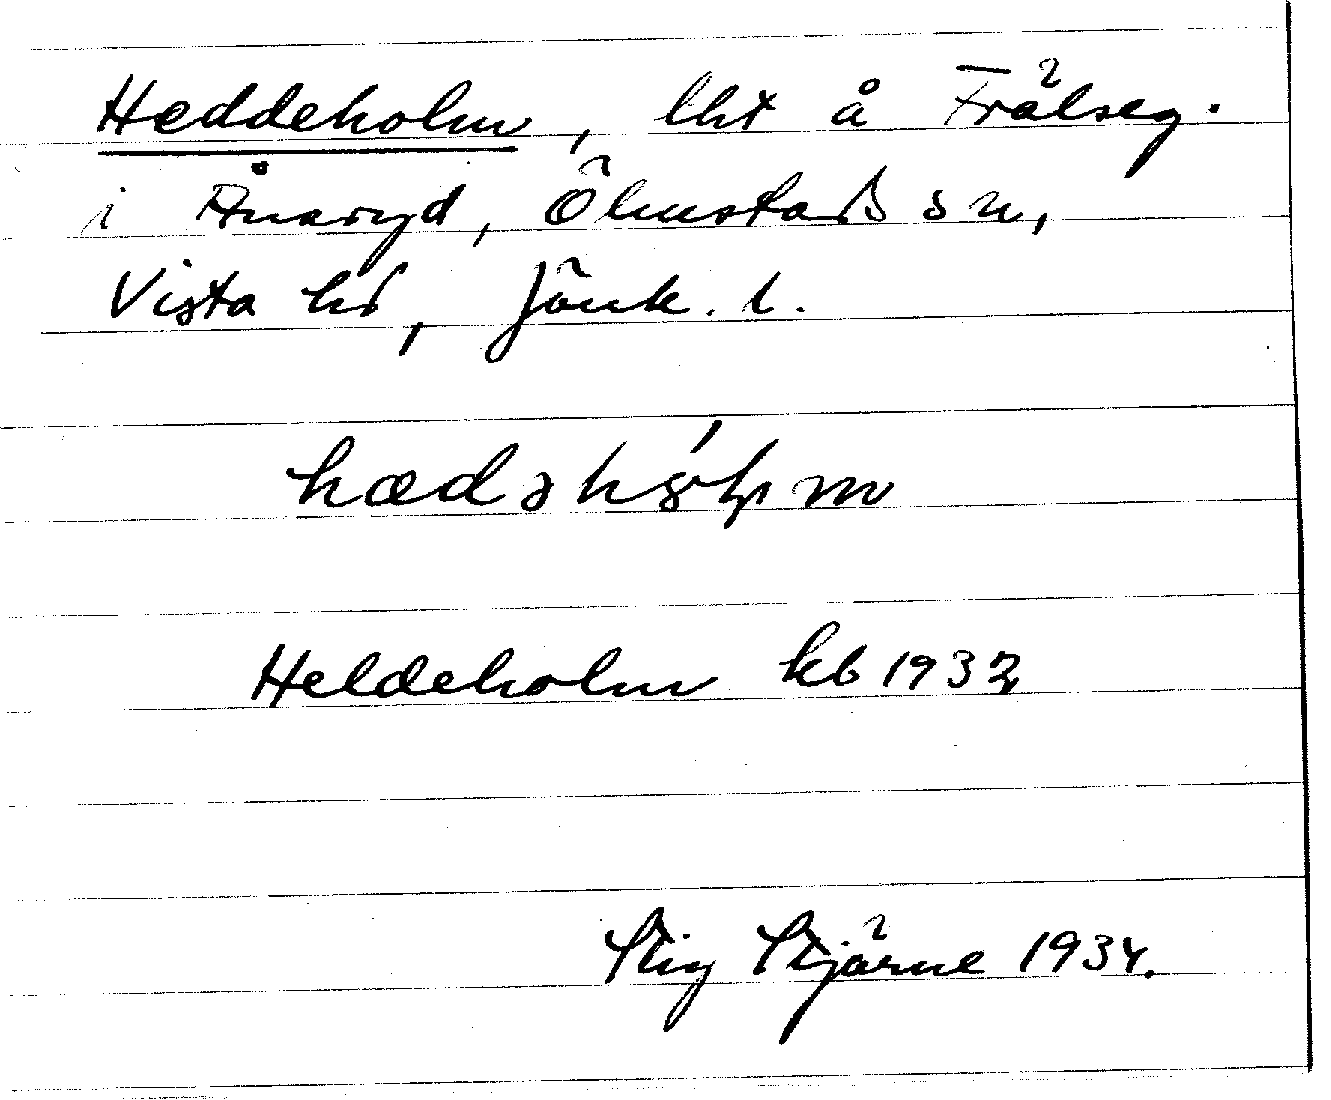 Heddeholm, lht å Frälseg.
i Ånaryd, Ölmstads sn,
Vista hd, Jönk. l.
hædəhȯḷm
Heldeholm kb 1932
Stig Stjärne 1934.